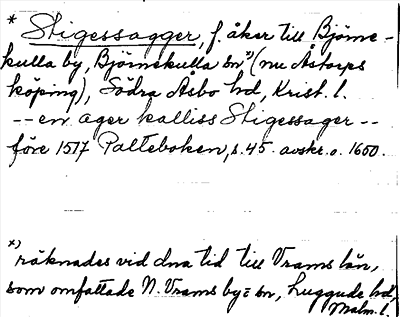 * Stigessagger, f. åker till Björne-
kulla by, Björnekulla sn *) (nu Åstorps
köping), Södra Åsbo hd, Krist. l.
-- en ager kalliss Stigessager --
före 1517 Palteboken, s. 45. avskr. o. 1600.
*) räknades vid dna tid till Vrams län,
som omfattade N. Vrams by o sn, Luggude hd,
Malm. l.